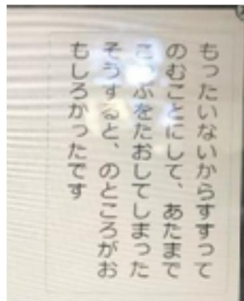 もったいないからすすって
のむことにして、あたまで
こぶをたおしてしまった
そうすると、のところがお
もしろかったです